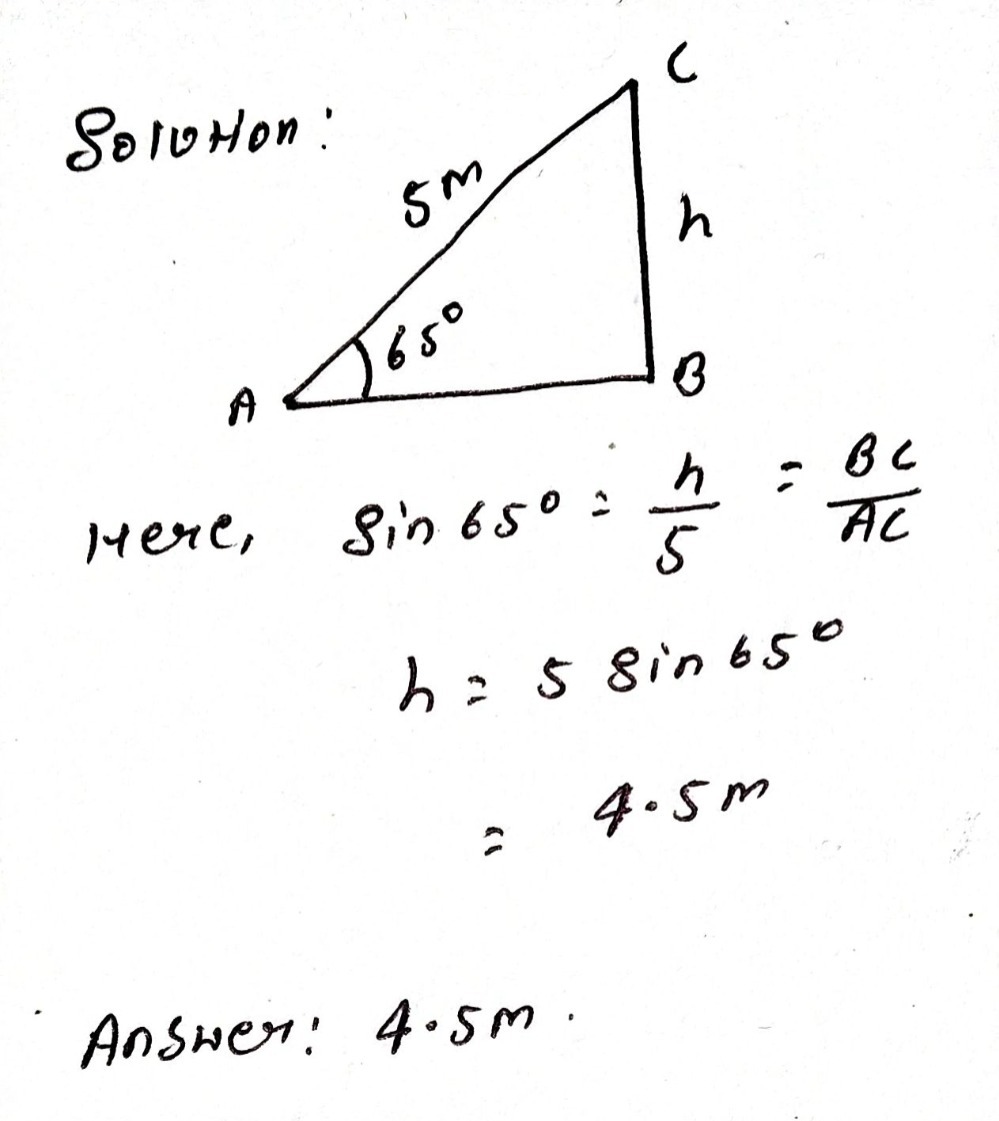 Solution:
C
5m
h
65°
A
B
Here, sin 65° = h/5 = BC/AC
h = 5 sin 65°
= 4.5m
Answer: 4.5m.